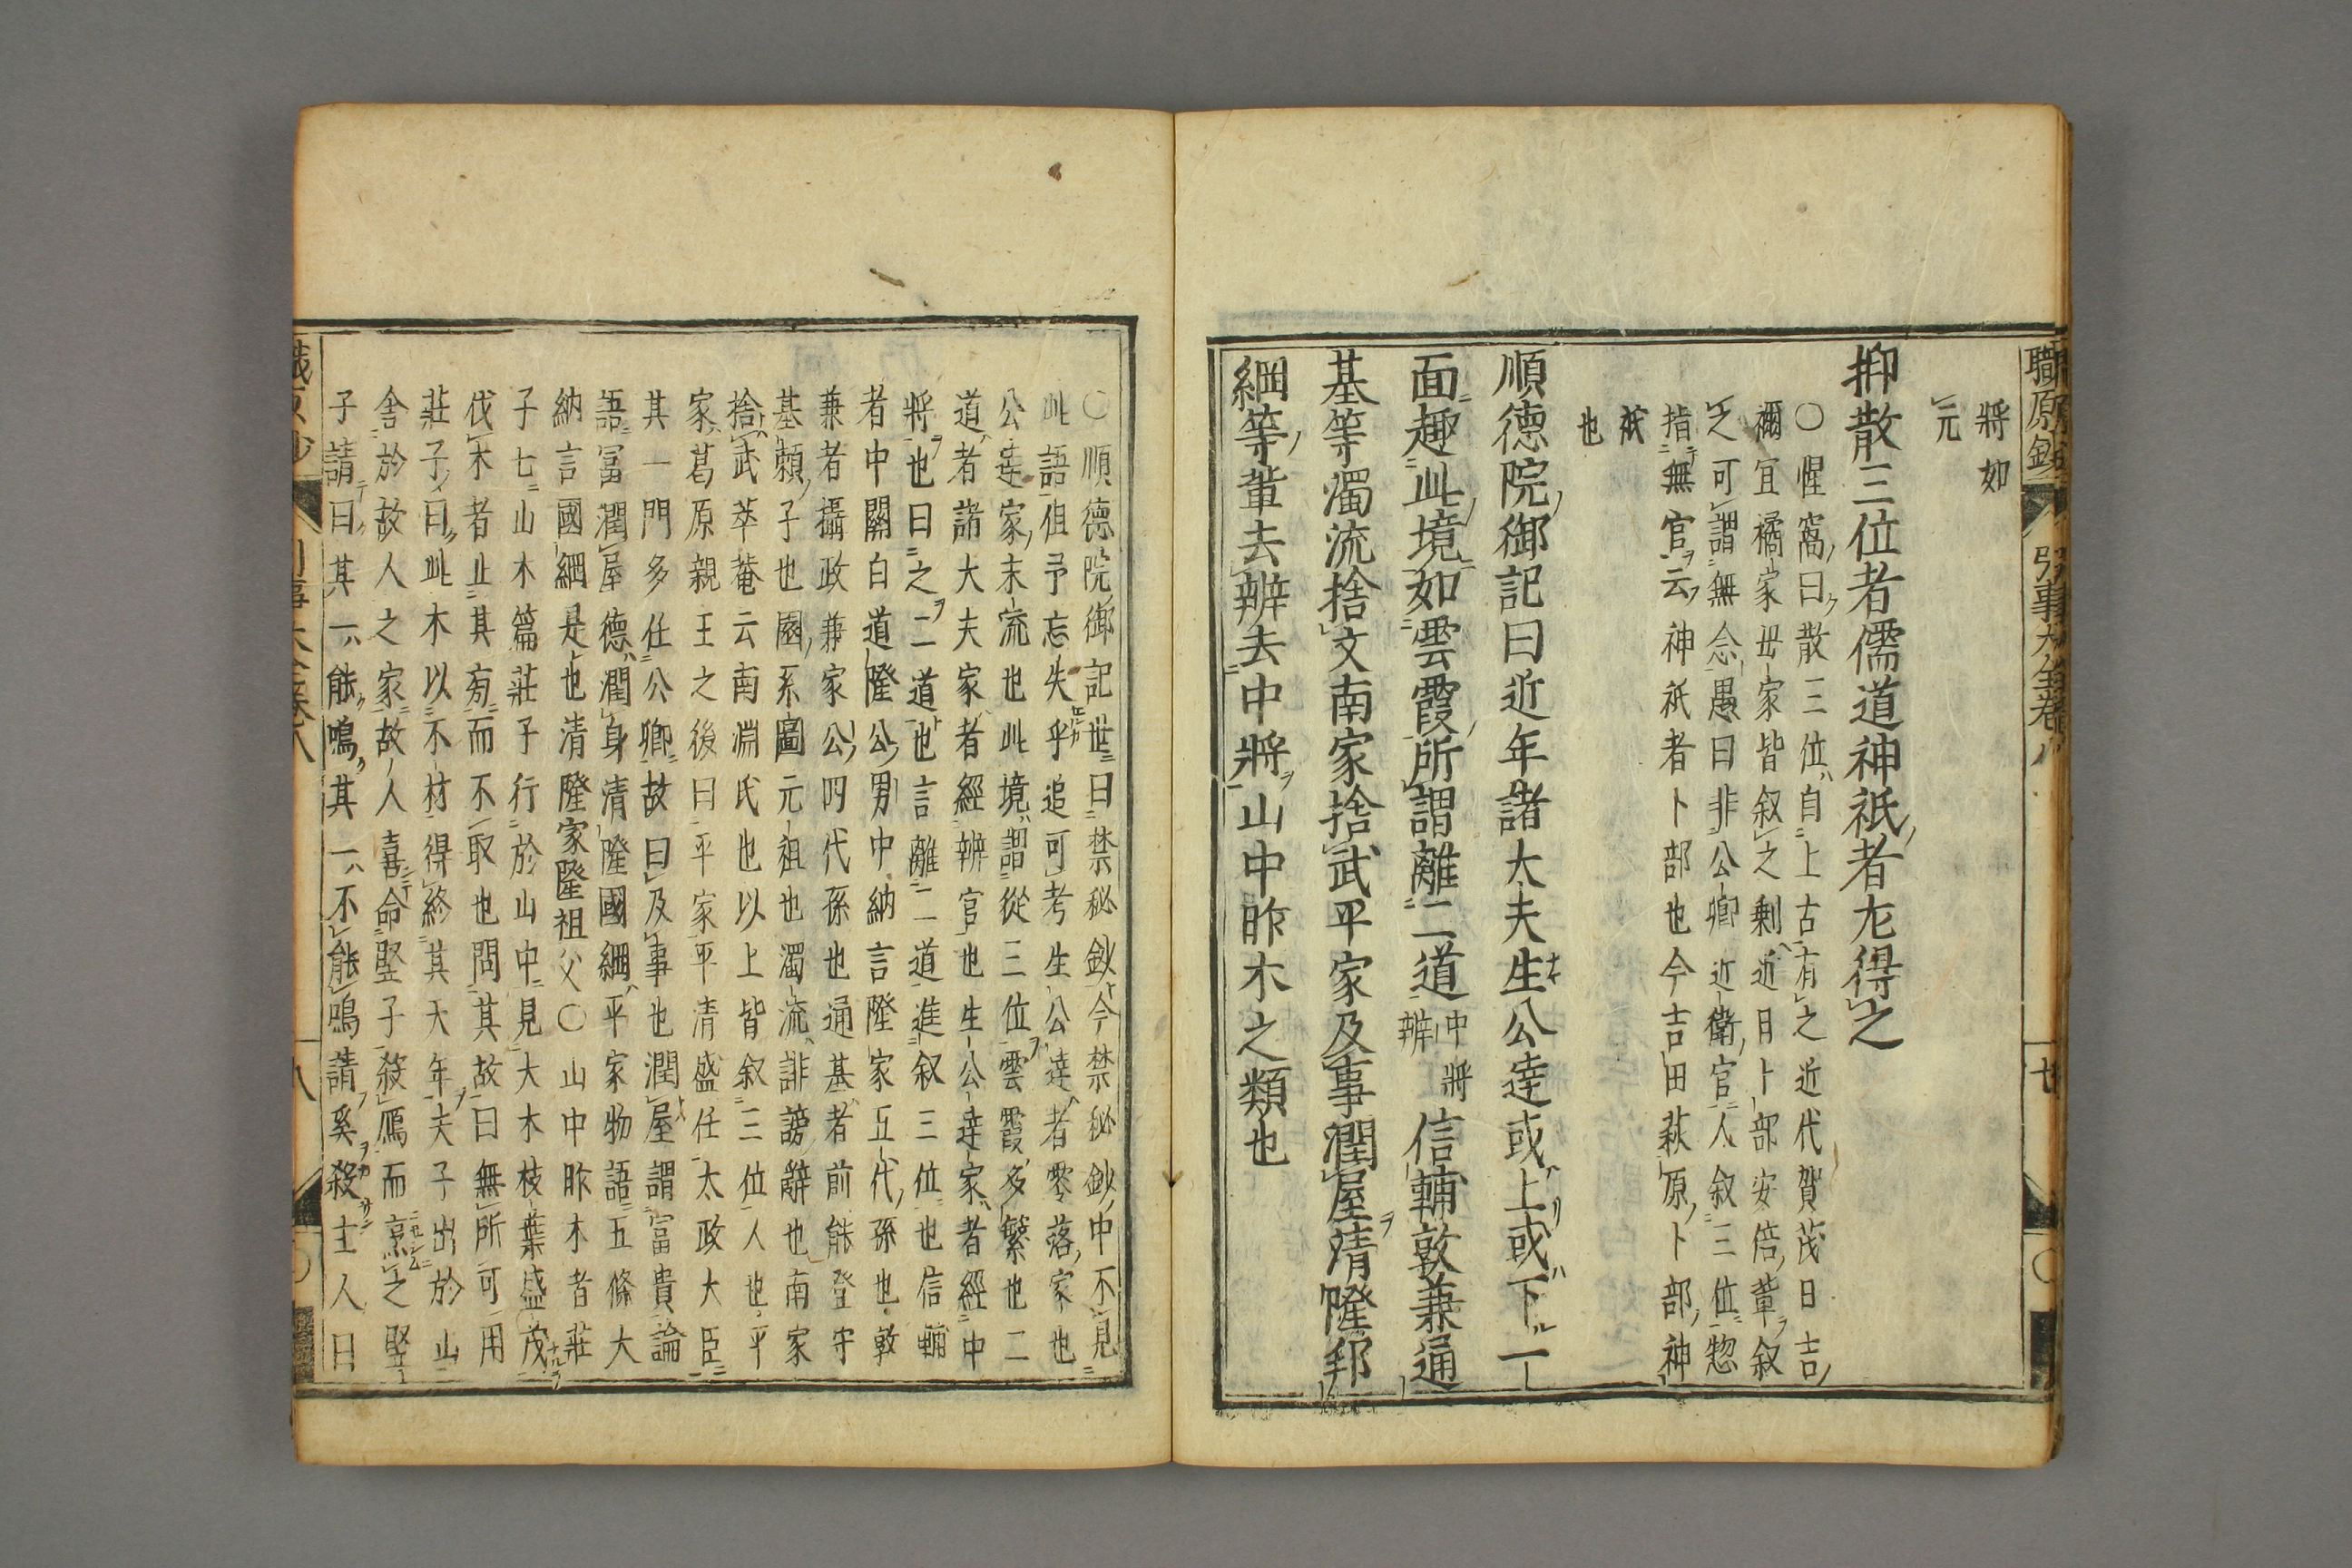 職原鈔 引事大全卷八
將如
元
抑散三位者儒道神祇者尤得之
〇惺窩曰散三位自上古有之近代賀茂日吉
禰宜橘家毋家皆叙之剩近日卜部安倍輩叙
之可謂無念愚曰非公卿近衛官人叙三位惣
指無官云神祇者卜部也今吉田萩原卜部神
祇
也
順德院御記曰近年諸大夫生公達或上或下一
面趣此境如雲霞所謂離二道中將辨信輔敦兼通
基等濁流捨文南家捨武平家及事潤屋清隆邦
綱等輩去辨去中將山中昨木之類也
〇順德院御記世曰禁秘鈔今禁秘鈔中不見
此語但予忘失乎追可考生公達者零落家也
公達家末流也此境謂從三位雲霞多繁也二
道者諸大夫家者經辨官也生公達家者經中
將也曰之二道也言離二道進叙三位也信輔
者中關白道隆公男中納言隆家五代孫也敦
兼者攝政兼家公四代孫也通基者前能登守
基賴子也園系圖元祖也濁流誹謗辭也南家
捨武萃菴云南淵氏也以上皆叙三位人也平
家葛原親王之後曰平家平清盛任太政大臣
其一門多任公卿故曰及事也潤屋謂富貴論
語冨潤屋德潤身清隆國綱平家物語五條大
納言國綱是也清隆家隆祖父〇山中昨木者莊
子七山木篇莊子行於山中見大木枝葉盛茂
伐木者止其旁而不取也問其故曰無所可用
莊子曰此木以不材得終其天年夫子出於山
舍於故人之家故人喜命竪子殺鴈而烹之竪
子請曰其一能鳴其一不能鳴請奚殺主人曰